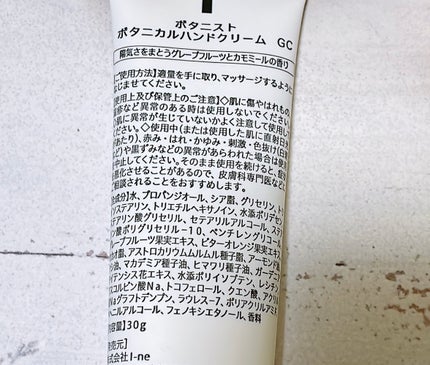 ボタニスト
ボタニカルハンドクリーム GC
陽気さをまとうグレープフルーツとカモミールの香り
ご使用方法】適量を手に取り、マッサージするように
なじませてください。
使用上及び保管上のご注意】◇肌に傷やはれもの、
異常のある時は使用しないでください。
肌に異常が生じていないかよく注意して使用して
ください。◇使用中(または使用した肌に直射日光
あたり)、赤み・はれ・かゆみ・刺激・色抜け(白斑
)や黒ずみなどの異常があらわれた場合は使用を
中止してください。そのまま使用を続けると、症状
悪化させることがあるので、皮膚科専門医などに
相談されることをおすすめします。
成分】水、プロパンジオール、シア脂、グリセリン、ト
ステアリン、トリエチルヘキサノイン、水添ポリデセ
テアリン酸グリセリル、セテアリルアルコール、ステ
酸ポリグリセリル-10、ペンチレングリコール
グレープフルーツ果実エキス、ビターオレンジ果実エキ
油、アストロカリウムムルムル種子脂、アーモンド
油、マカデミア種子油、ヒマワリ種子油、ガーデニア
テンシス花エキス、水添ポリイソブテン、レシチン
スコルビン酸Na、トコフェロール、クエン酸、アクリ
Naグラフトデンプン、ラウレス-7、ポリアクリルアミ
ニルアルコール、フェノキシエタノール、香料
容量】30g
発売元】
株式会社I-ne